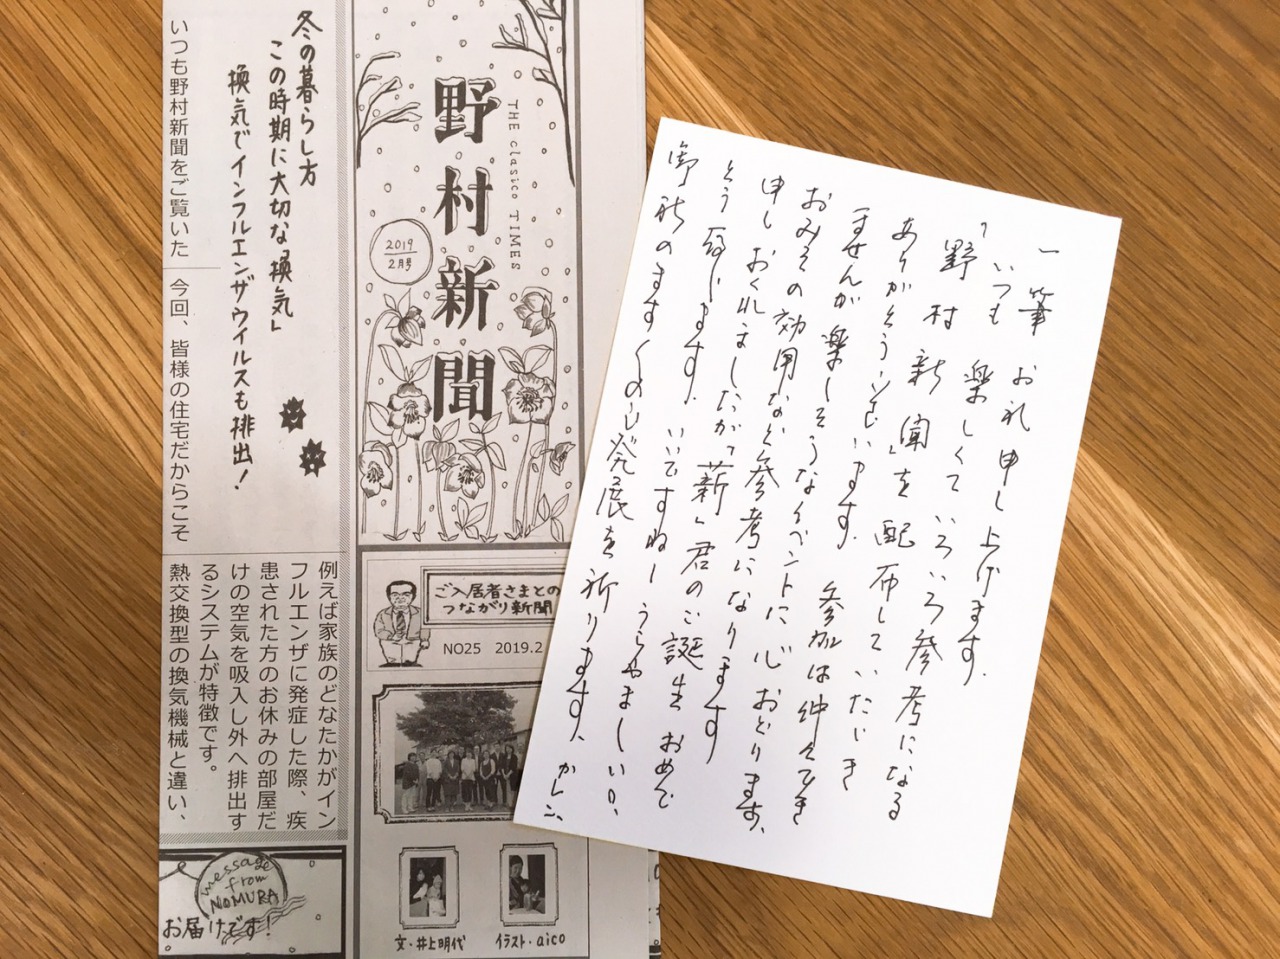 冬の暮らし方
この時期に大切な「換気」
換気でインフルエンザウイルスも排出！
いつも野村新聞をご覧いた
今回、皆様の住宅だからこそ
例えば家族のどなたかがイン
フルエンザに発症した際、疾
患された方のお休みの部屋だ
けの空気を吸入し外へ排出す
るシステムが特徴です。
熱交換型の換気機械と違い、
message
from
NOMURA
お届けです!
野村新聞
THE clasico TIMES
2019
2月号
ご入居者さまとの
つながり新聞
NO25 2019.2
文・井上明代
イラスト・aico
一筆お礼申し上げます。
いつも楽しくていろいろ参考になる
「野村新聞」を配布していただき
ありがとうございます。参加は仲々でき
ませんが楽しそうなイベントに心おどります、
おみその効用など参考になります
申しおくれましたが「薪」君のご誕生おめで
とう致します。いいですねーうらやましいの、
御社のますますの発展を祈ります、